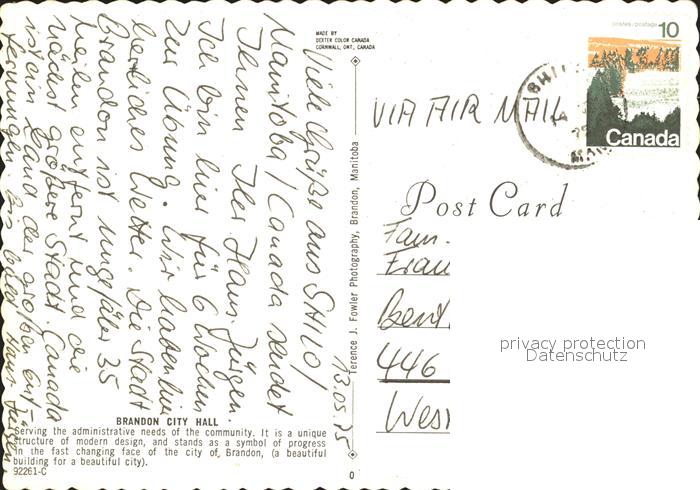 Viele Grüße aus SHILO/
Manitoba/Canada sendet
Ihnen Iher Hans-Jürgen.
Ich bin hier für 6 Wochen
zur Übung. Wir haben hier
herliches Wetter. Die Stadt
Brandon ist ungefäher 35
meilen entfernt und die
nächst größere Stadt. Canada
ist ein Land der großen Ent-
fernungen. bis bald Hans-Jürgen
13.05.75
BRANDON CITY HALL
Serving the administrative needs of the community. It is a unique
structure of modern design, and stands as a symbol of progress
in the fast changing face of the city of, Brandon, (a beautiful
building for a beautiful city).
92261-C
MADE BY
DEXTER COLOR CANADA
CORNWALL, ONT, CANADA
Terence J. Fowler Photography, Brandon, Manitoba
0
postes/postage 10
Canada
VIA AIR MAIL
Post Card
Fam.
Frau
Bent
446
Wes
privacy protection
Datenschutz